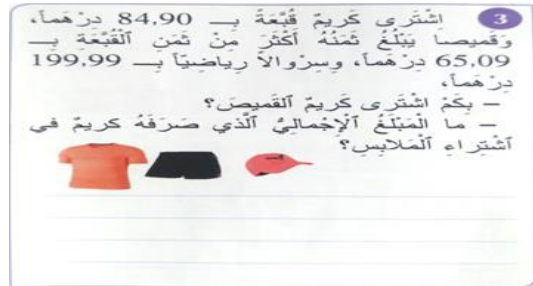 3 اِشْتَرى كَريمٌ قُبَّعَةً بِــ 84,90 دِرْهَماً،
وَقَميصاً يَبْلُغُ ثَمَنُهُ أَكْثَرَ مِنْ ثَمَنِ ٱلْقُبَّعَةِ بِــ
65,09 دِرْهَماً، وَسِرْوالاً رِياضِيّاً بِــ 199,99
دِرْهَماً،
– بِكَمْ اشْتَرى كَريمٌ ٱلقَميصَ؟
– ما الْمَبْلَغُ ٱلْإِجْمالِيُّ ٱلَّذي صَرَفَهُ كَريمٌ في
ٱشْتِراءِ ٱلْمَلابِسِ؟